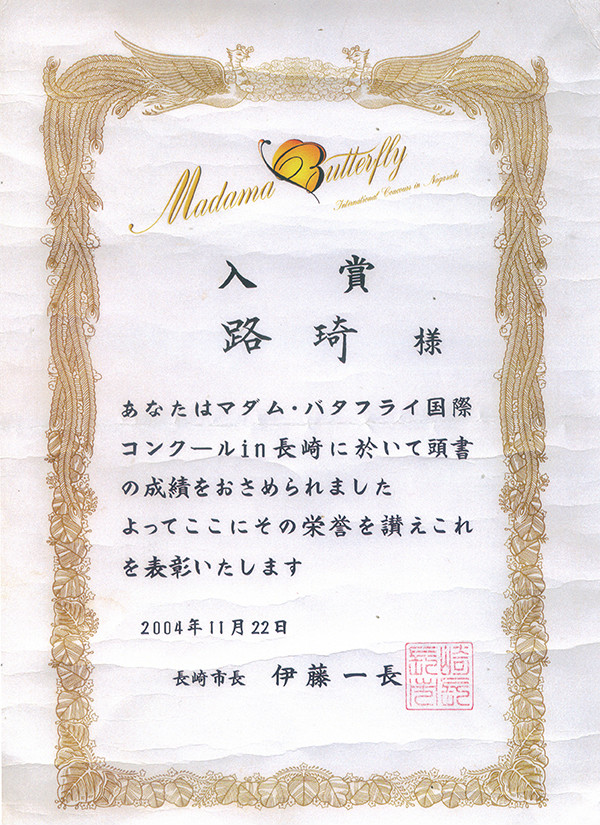 Madama Butterfly
International Concours in Nagasaki
入賞
路琦 様
あなたはマダム・バタフライ国際
コンクールin長崎に於いて頭書
の成績をおさめられました
よってここにその栄誉を讃えこれ
を表彰いたします
2004年11月22日
長崎市長 伊藤一長